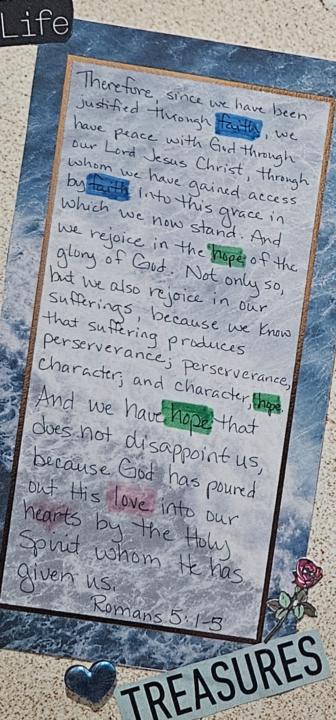 Life
Therefore, since we have been
justified through faith, we
have peace with God through
our Lord Jesus Christ, through
whom we have gained access
by faith into this grace in
which we now stand. And
we rejoice in the hope of the
glory of God. Not only so,
but we also rejoice in our
sufferings, because we know
that suffering produces
perserverance; perserverance,
character; and character, hope.
And we have hope that
does not disappoint us,
because God has poured
out His love into our
hearts by the Holy
Spirit whom He has
given us.
Romans 5:1-5
TREASURES